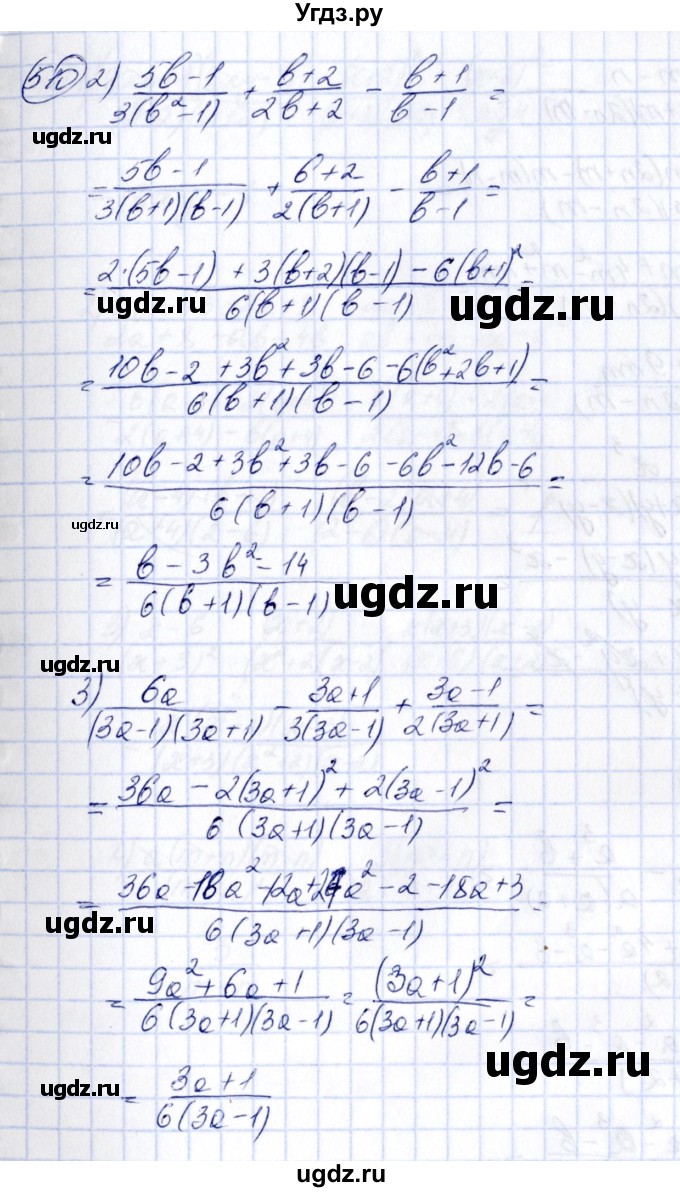 Угдз.ру
510 2) (5b-1)/(3(b²-1)) + (b+2)/(2b+2) - (b+1)/(b-1) =
ugdz.ru
= (5b-1)/(3(b+1)(b-1)) + (b+2)/(2(b+1)) - (b+1)/(b-1) =
= (2·(5b-1) + 3(b+2)(b-1) - 6(b+1)²)/(6(b+1)(b-1)) =
ugdz.ru ugdz.ru
= (10b-2+3b²+3b-6-6(b²+2b+1))/(6(b+1)(b-1)) =
= (10b-2+3b²+3b-6-6b²-12b-6)/(6(b+1)(b-1)) =
ugdz.ru
= (b-3b²-14)/(6(b+1)(b-1))
ugdz.ru
ugdz.ru
3) 6a/((3a-1)(3a+1)) - (3a+1)/(3(3a-1)) + (3a-1)/(2(3a+1)) =
= (36a - 2(3a+1)² + 2(3a-1)²)/(6(3a+1)(3a-1)) =
= (36a-18a²-12a+27a²-2-18a+3)/(6(3a+1)(3a-1)) =
ugdz.ru
= (9a²+6a+1)/(6(3a+1)(3a-1)) = (3a+1)²/(6(3a+1)(3a-1)) =
ugdz.ru
= (3a+1)/(6(3a-1))
ugdz.ru
ugdz.ru